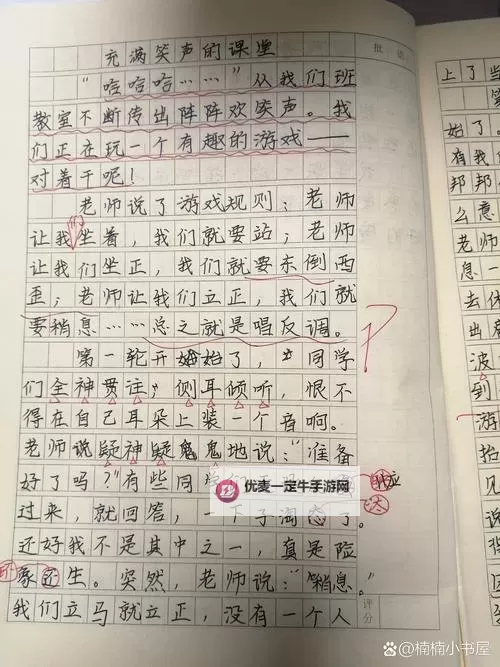 充满笑声的课堂
批语
“哈哈哈……”从我们班
教室不断传出阵阵欢笑声。我
们正在玩一个有趣的游戏——
对着干呢！
老师说了游戏规则：老师
们
让我坐着，我们就要站；老师
让我们坐正，我们就要东倒西
歪；老师让我们立正，我们就
要稍息……总之就是唱反调。
第一轮开始了，同学
们全神贯注，侧耳倾听，恨不
得在自己耳朵上装一个音响。
老师说疑神疑鬼地说：“准备
好了吗？”有些同
应
过来，就回答，一下子淘
汰
了。
还好我不是其中之一，真是险
象还生。突然，老师说：“稍息。”
环
我们立马就立正，没有一个人
评分
上了当
始了
有我们
邦邦
么意
老师
息一
去休
出
波
到
游
抬
见
说
背
因
优麦一定牛手游网
头条 @楠楠小书屋